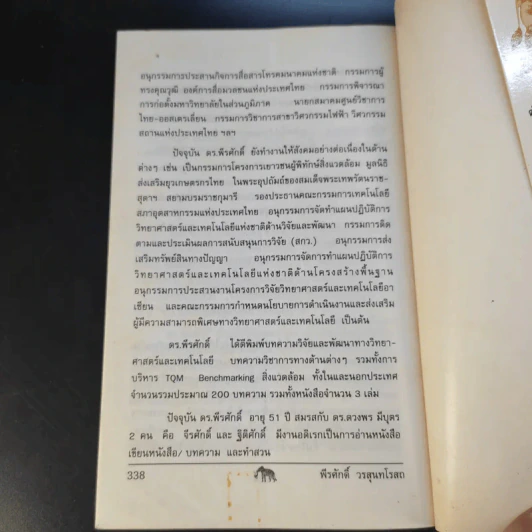 อนุกรรมการประสานกิจการสื่อสารโทรคมนาคมแห่งชาติ กรรมการผู้
ทรงคุณวุฒิ องค์การสื่อมวลชนแห่งประเทศไทย กรรมการพิจารณา
การก่อตั้งมหาวิทยาลัยในส่วนภูมิภาค นายกสมาคมศูนย์วิชาการ
ไทย-ออสเตรเลียน กรรมการวิชาการสาขาวิศวกรรมไฟฟ้า วิศวกรรม
สถานแห่งประเทศไทย ฯลฯ
ปัจจุบัน ดร.พีรศักดิ์ ยังทำงานให้สังคมอย่างต่อเนื่องในด้าน
ต่างๆ เช่น เป็นกรรมการโครงการเยาวชนผู้พิทักษ์สิ่งแวดล้อม มูลนิธิ
ส่งเสริมยุวเกษตรกรไทย ในพระอุปถัมภ์ของสมเด็จพระเทพรัตนราช-
สุดาฯ สยามบรมราชกุมารี รองประธานคณะกรรมการเทคโนโลยี
สภาอุตสาหกรรมแห่งประเทศไทย อนุกรรมการจัดทำแผนปฏิบัติการ
วิทยาศาสตร์และเทคโนโลยีแห่งชาติด้านวิจัยและพัฒนา กรรมการติด
ตามและประเมินผลการสนับสนุนการวิจัย (สกว.) อนุกรรมการส่ง
เสริมทรัพย์สินทางปัญญา อนุกรรมการจัดการทำแผนปฏิบัติการ
วิทยาศาสตร์และเทคโนโลยีแห่งชาติด้านโครงสร้างพื้นฐาน
อนุกรรมการประสวนงานโครงการวิจัยวิทยาศาสตร์และเทคโนโลยีอา
เซียน และคณะกรรมการกำหนดนโยบายการดำเนินงานและส่งเสริม
ผู้มีความสามารถพิเศษทางวิทยาศาสตร์และเทคโนโลยี เป็นต้น
ดร.พีรศักดิ์ ได้ตีพิมพ์บทความวิจัยและพัฒนาทางวิทยา-
ศาสตร์และเทคโนโลยี บทความวิชาการทางด้านต่างๆ รวมทั้งการ
บริหาร TQM Benchmarking สิ่งแวดล้อม ทั้งในและนอกประเทศ
จำนวนรวมประมาณ 200 บทความ รวมทั้งหนังสือจำนวน 3 เล่ม
ปัจจุบัน ดร.พีรศักดิ์ อายุ 51 ปี สมรสกับ ดร.ดวงพร มีบุตร
2 คน คือ จีรศักดิ์ และ ฐิติศักดิ์ มีงานอดิเรกเป็นการอ่านหนังสือ
เขียนหนังสือ/ บทความ และทำสวน
338 พีรศักดิ์ วรสุนทโรสถ